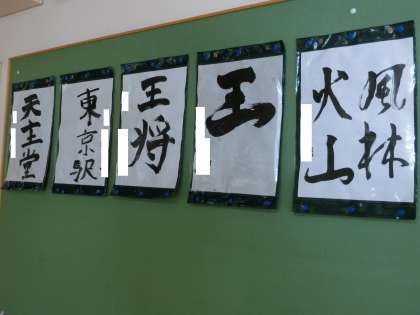 風林
火山
王
王将
東京駅
天主堂